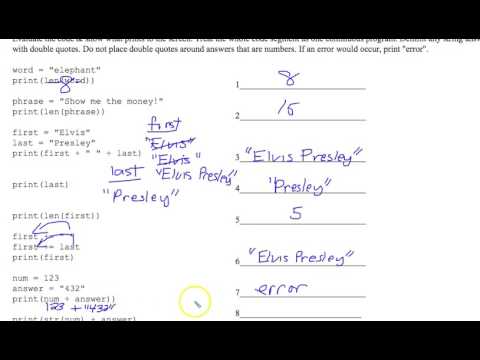 Evaluate the code & show what prints to the screen. Treat the whole code segment as one continuous program.
with double quotes. Do not place double quotes around answers that are numbers. If an error would occur, print "error".
word = "elephant"
print(len(word))
8
1 8
phrase = "Show me the money!"
print(len(phrase))
2
first = "Elvis"
last = "Presley"
print(first + " " + last)
first
"Elvis"
"Elvis "
"Elvis Presley"
3 "Elvis Presley"
print(last)
last
"Presley"
4 "Presley"
print(len(first))
5 5
first +=
first += last
print(first)
6 "Elvis Presley"
num = 123
answer = "432"
print(num + answer))
123 + "432"
7 error
print(str(num) + answer)
8